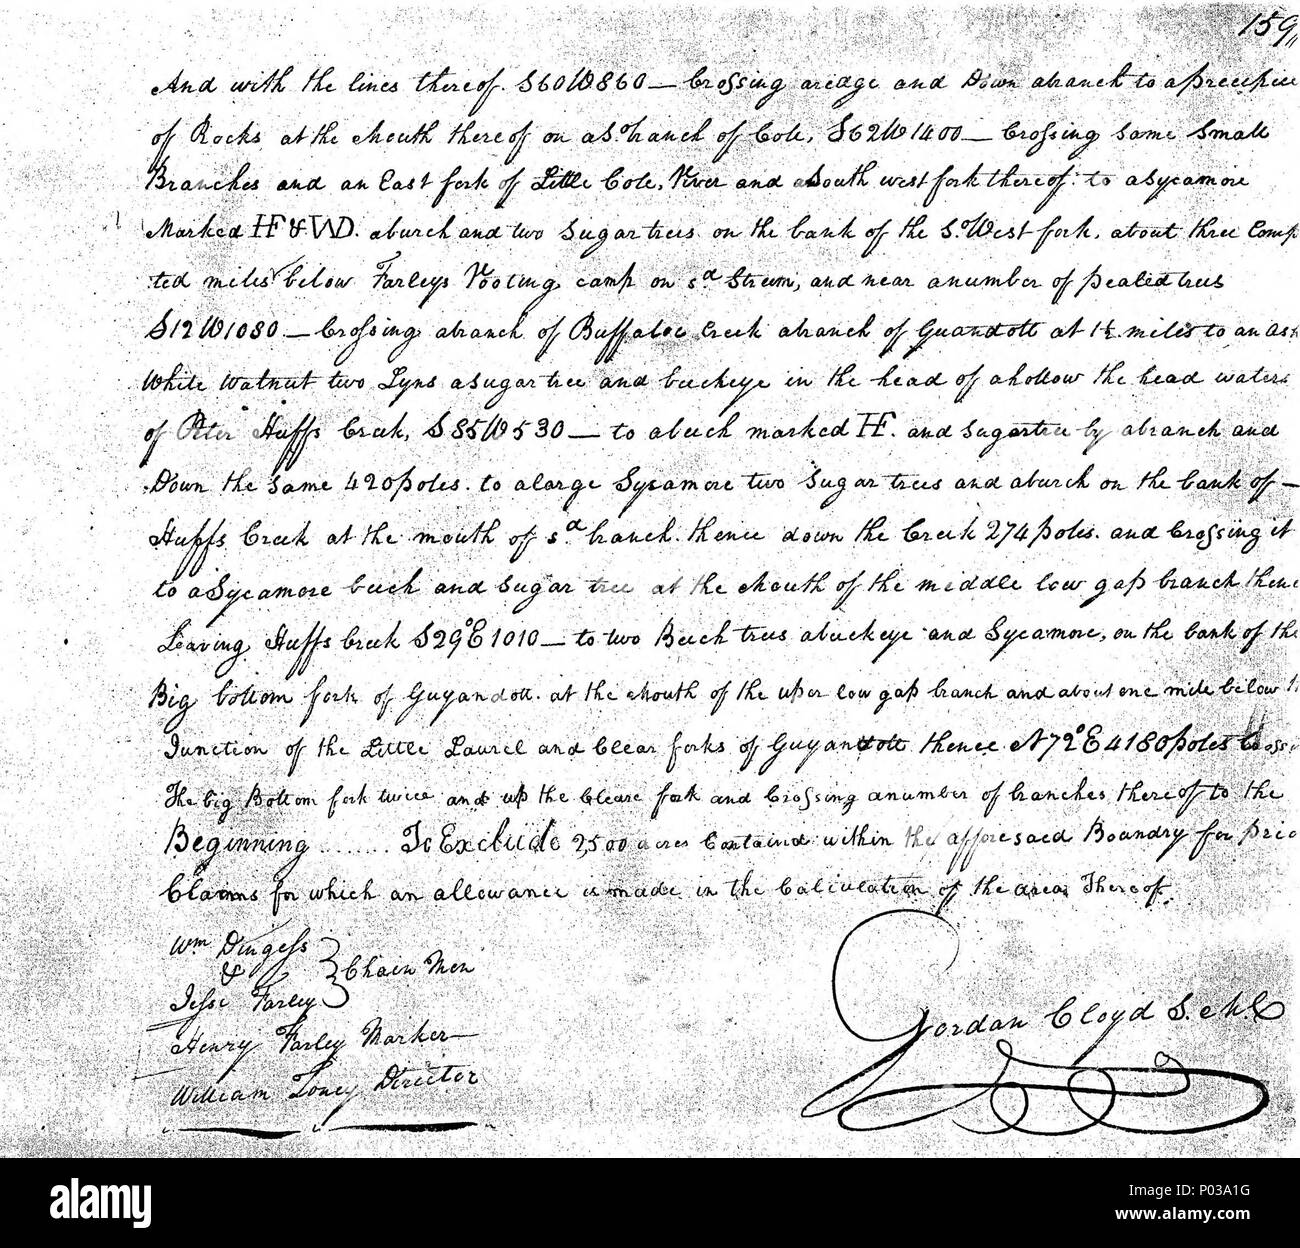 159
And with the lines thereof S60W860 — Crossing a redge and Down a branch to a precepice
of Rocks at the Mouth thereof on a So. branch of Cole, S62W1400 — Crossing some small
Branches and an East fork of Little Cole, River and a South west fork thereof to a Sycamore
Marked HF & WD. a burch and two Sugar trees on the bank of the So. West fork, about three Comp
ted miles below Farleys Rooting camp on sd Streem, and near a number of pealed trees
S12W1080 — Crossing a branch of Buffaloe Creek a branch of Guandott at 1½ miles to an as
White Walnut two Lyns a sugar tree and buckeye in the head of a hollow the head waters
of Peter Huffs Creek, S85W530 — to a beech marked HF. and sugartree by a branch and
Down the same 420 poles. to a large Sycamore two Sugar trees and a burch on the bank of —
Huffs Creek at the mouth of sd branch. thence down the Creek 274 poles. and Crossing it
to a Sycamore beech and sugar tree at the Mouth of the middle low gap branch thence
Leaving Huffs Creek S29°E1010 — to two Beech trees a buckeye and Sycamore, on the bank of the
Big bottom fork of Guyandott. at the Mouth of the uper low gap branch and about one mile below
Junction of the Little Laurel and Clear forks of Guyandott thence N72°E4180 poles Cross
The big Bottom fork twice and up the Cleare fork and Crossing a number of branches thereof to the
Beginning ........ To Exclude 2,500 acres Containd within the afforesaed Boundry for prio
Claims for which an allowance is made in the Calculation of the area Thereof.
Wm Dingess
& Chaen Men
Jesse Farley
Henry Farley Marker
William Toney Director
Gordan Cloyd
alamy
Image ID: P03A1G
www.alamy.com